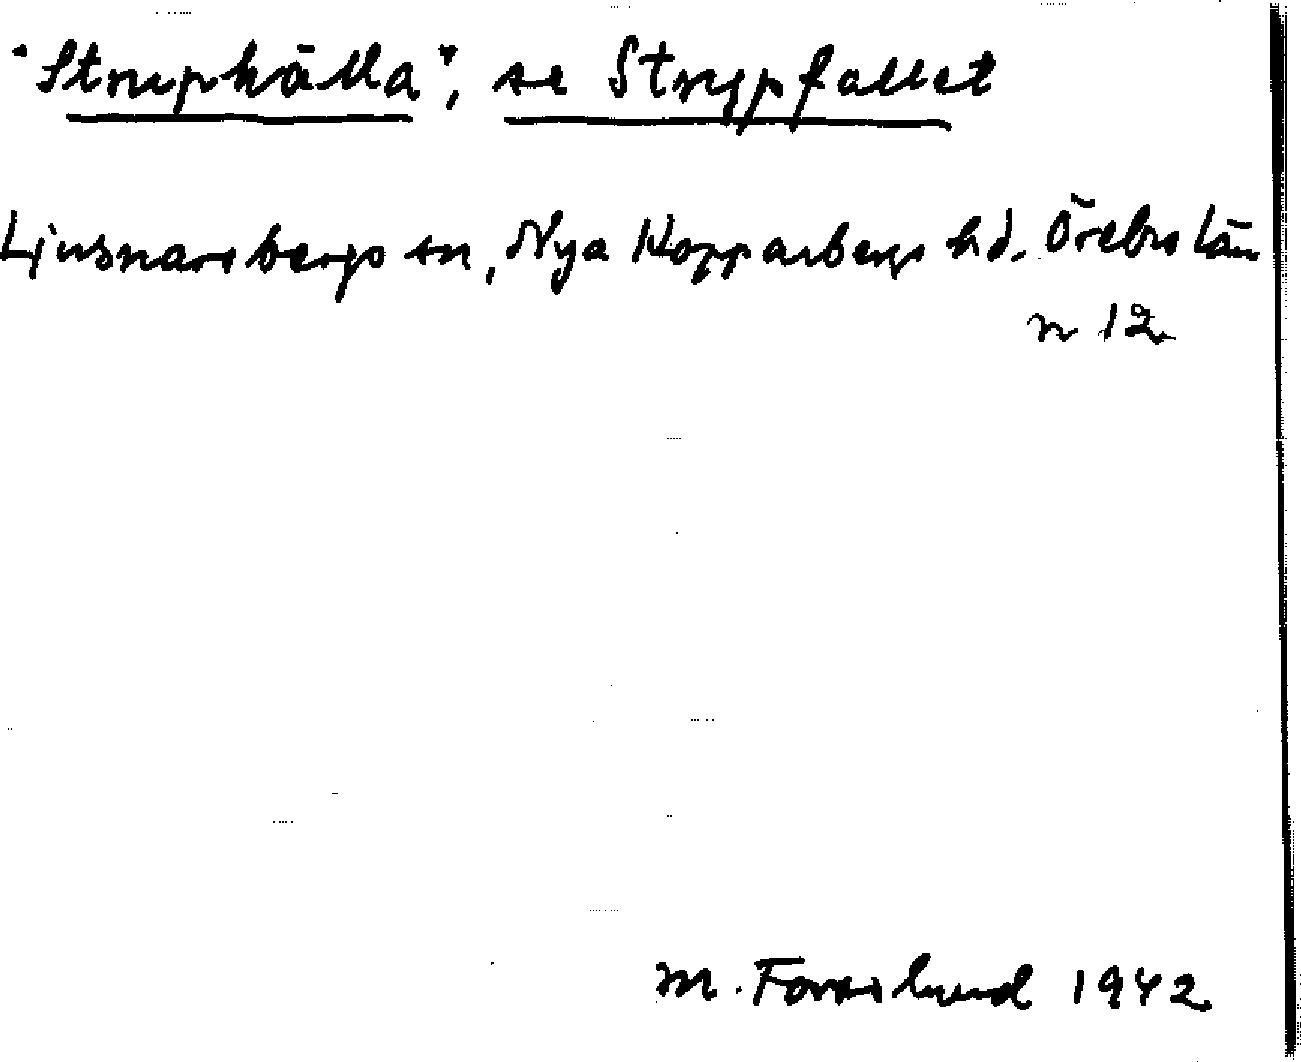 "Strupkälla", se Strypfallet
Ljusnarsbergs sn, Nya Kopparbergs hd. Örebro län
n 12
M. Forslund 1942